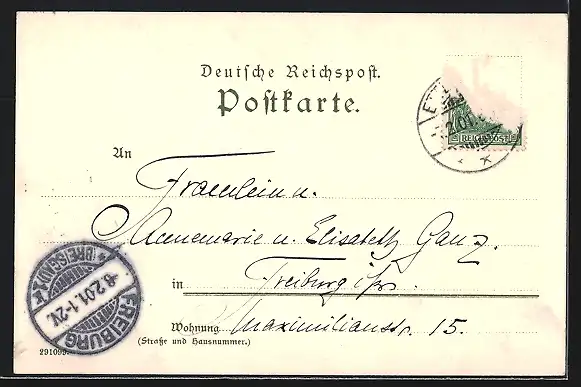 Deutsche Reichspost.
Postkarte.
REICHSPOST
2.01.
An
Fraeulein u.
Annemarie u. Elisabeth Ganz.
in Freiburg i/Br.
Wohnung Maximilianstr. 15.
(Straße und Hausnummer.)
FREIBURG
(BREISGAU) 1 *
8.2.01. 1-2 V.
291099.